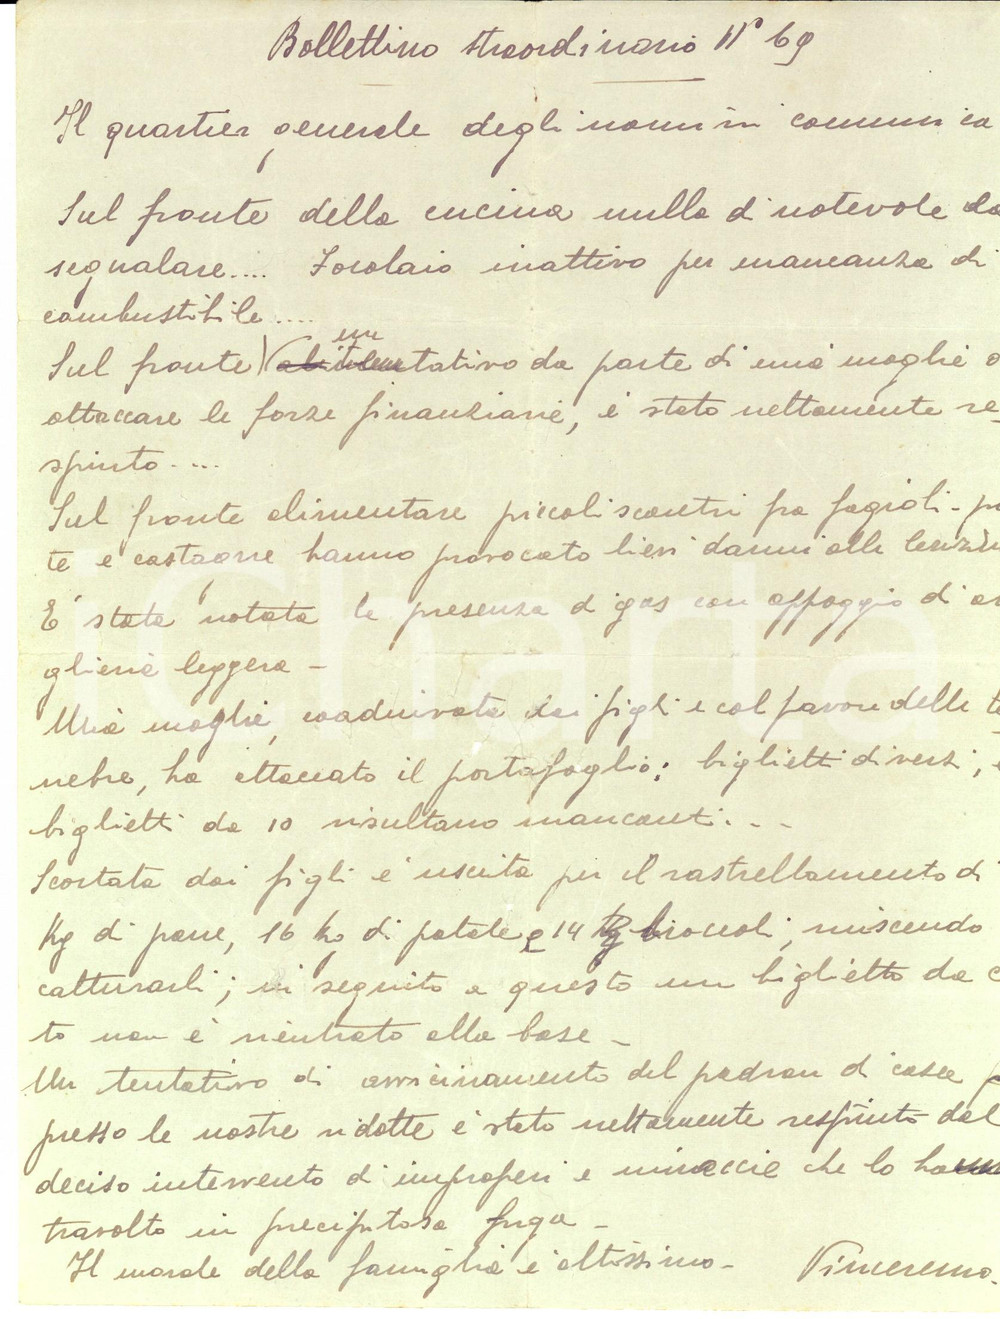 Bollettino straordinario N° 69
Il quartier generale degli uomini comunica
Sul fronte della cucina nulla di notevole da
segnalare.... Focolaio inattivo per mancanza di
combustibile....
un
Sul fronte tentativo da parte di mia moglie
attaccare le forze finanziarie, è stato nettamente re-
spinto....
Sul fronte alimentare piccoli scontri fra fagioli - pa
te e castagne hanno provocato lievi danni alle
E' stata notata la presenza di gas con appoggio di ar
glieria leggera -
Mia moglie, coadiuvata dai figli e col favore delle te
nebre, ha attaccato il portafoglio: biglietti diversi,
biglietti da 10 risultano mancanti...
Scortata dai figli è uscita per il rastrellamento di
Kg di pane, 16 kg di patate e 14 Kg broccoli, riuscendo
catturarli; in seguito a questo un biglietto da c
to non è rientrato alla base -
Un tentativo di avvicinamento del padron di casa
presso le nostre ridotte è stato nettamente respinto dal
deciso intervento di improperi e minaccie che lo ha
travolto in precipitosa fuga -
Il morale della famiglia è altissimo - Vinceremo.
iCharta